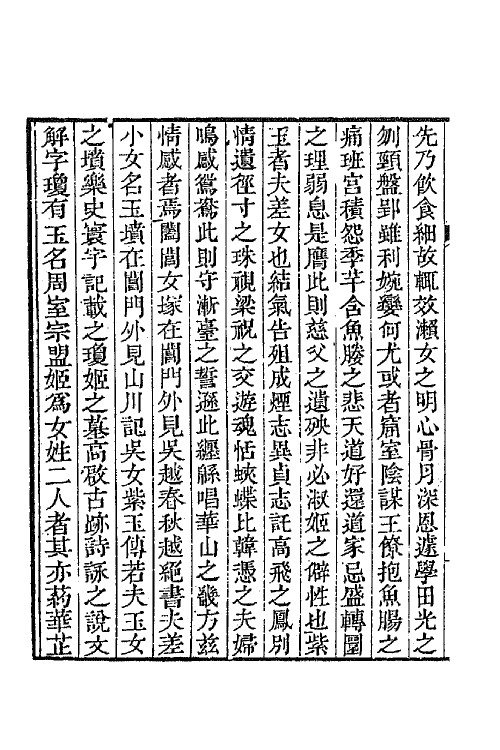 先乃飲食細故輒效瀨女之明心骨月深恩遽學田光之
刎頸盤郢雖利婉孌何尤或者窟室陰謀王僚抱魚腸之
痛班宮積怨季芊含魚媵之悲天道好還道家忌盛轉圜
之理弱息是膺此則慈父之遺殃非必淑姬之僻性也紫
玉者夫差女也結氣告殂成煙志異貞志託高飛之鳳別
情遺徑寸之珠視梁祝之交遊魂恬蛺蝶比韓憑之夫婦
鳴感鴛鴦此則守漸臺之誓遜此纏緜唱華山之畿方兹
情感者焉闔閭女塚在閶門外見吳越春秋越絕書夫差
小女名玉墳在閶門外見山川記吳女紫玉傳若夫玉女
之墳樂史寰宇記載之瓊姬之墓高啟古跡詩詠之說文
解字瓊有玉名周室宗盟姬爲女姓二人者其亦葯華芷